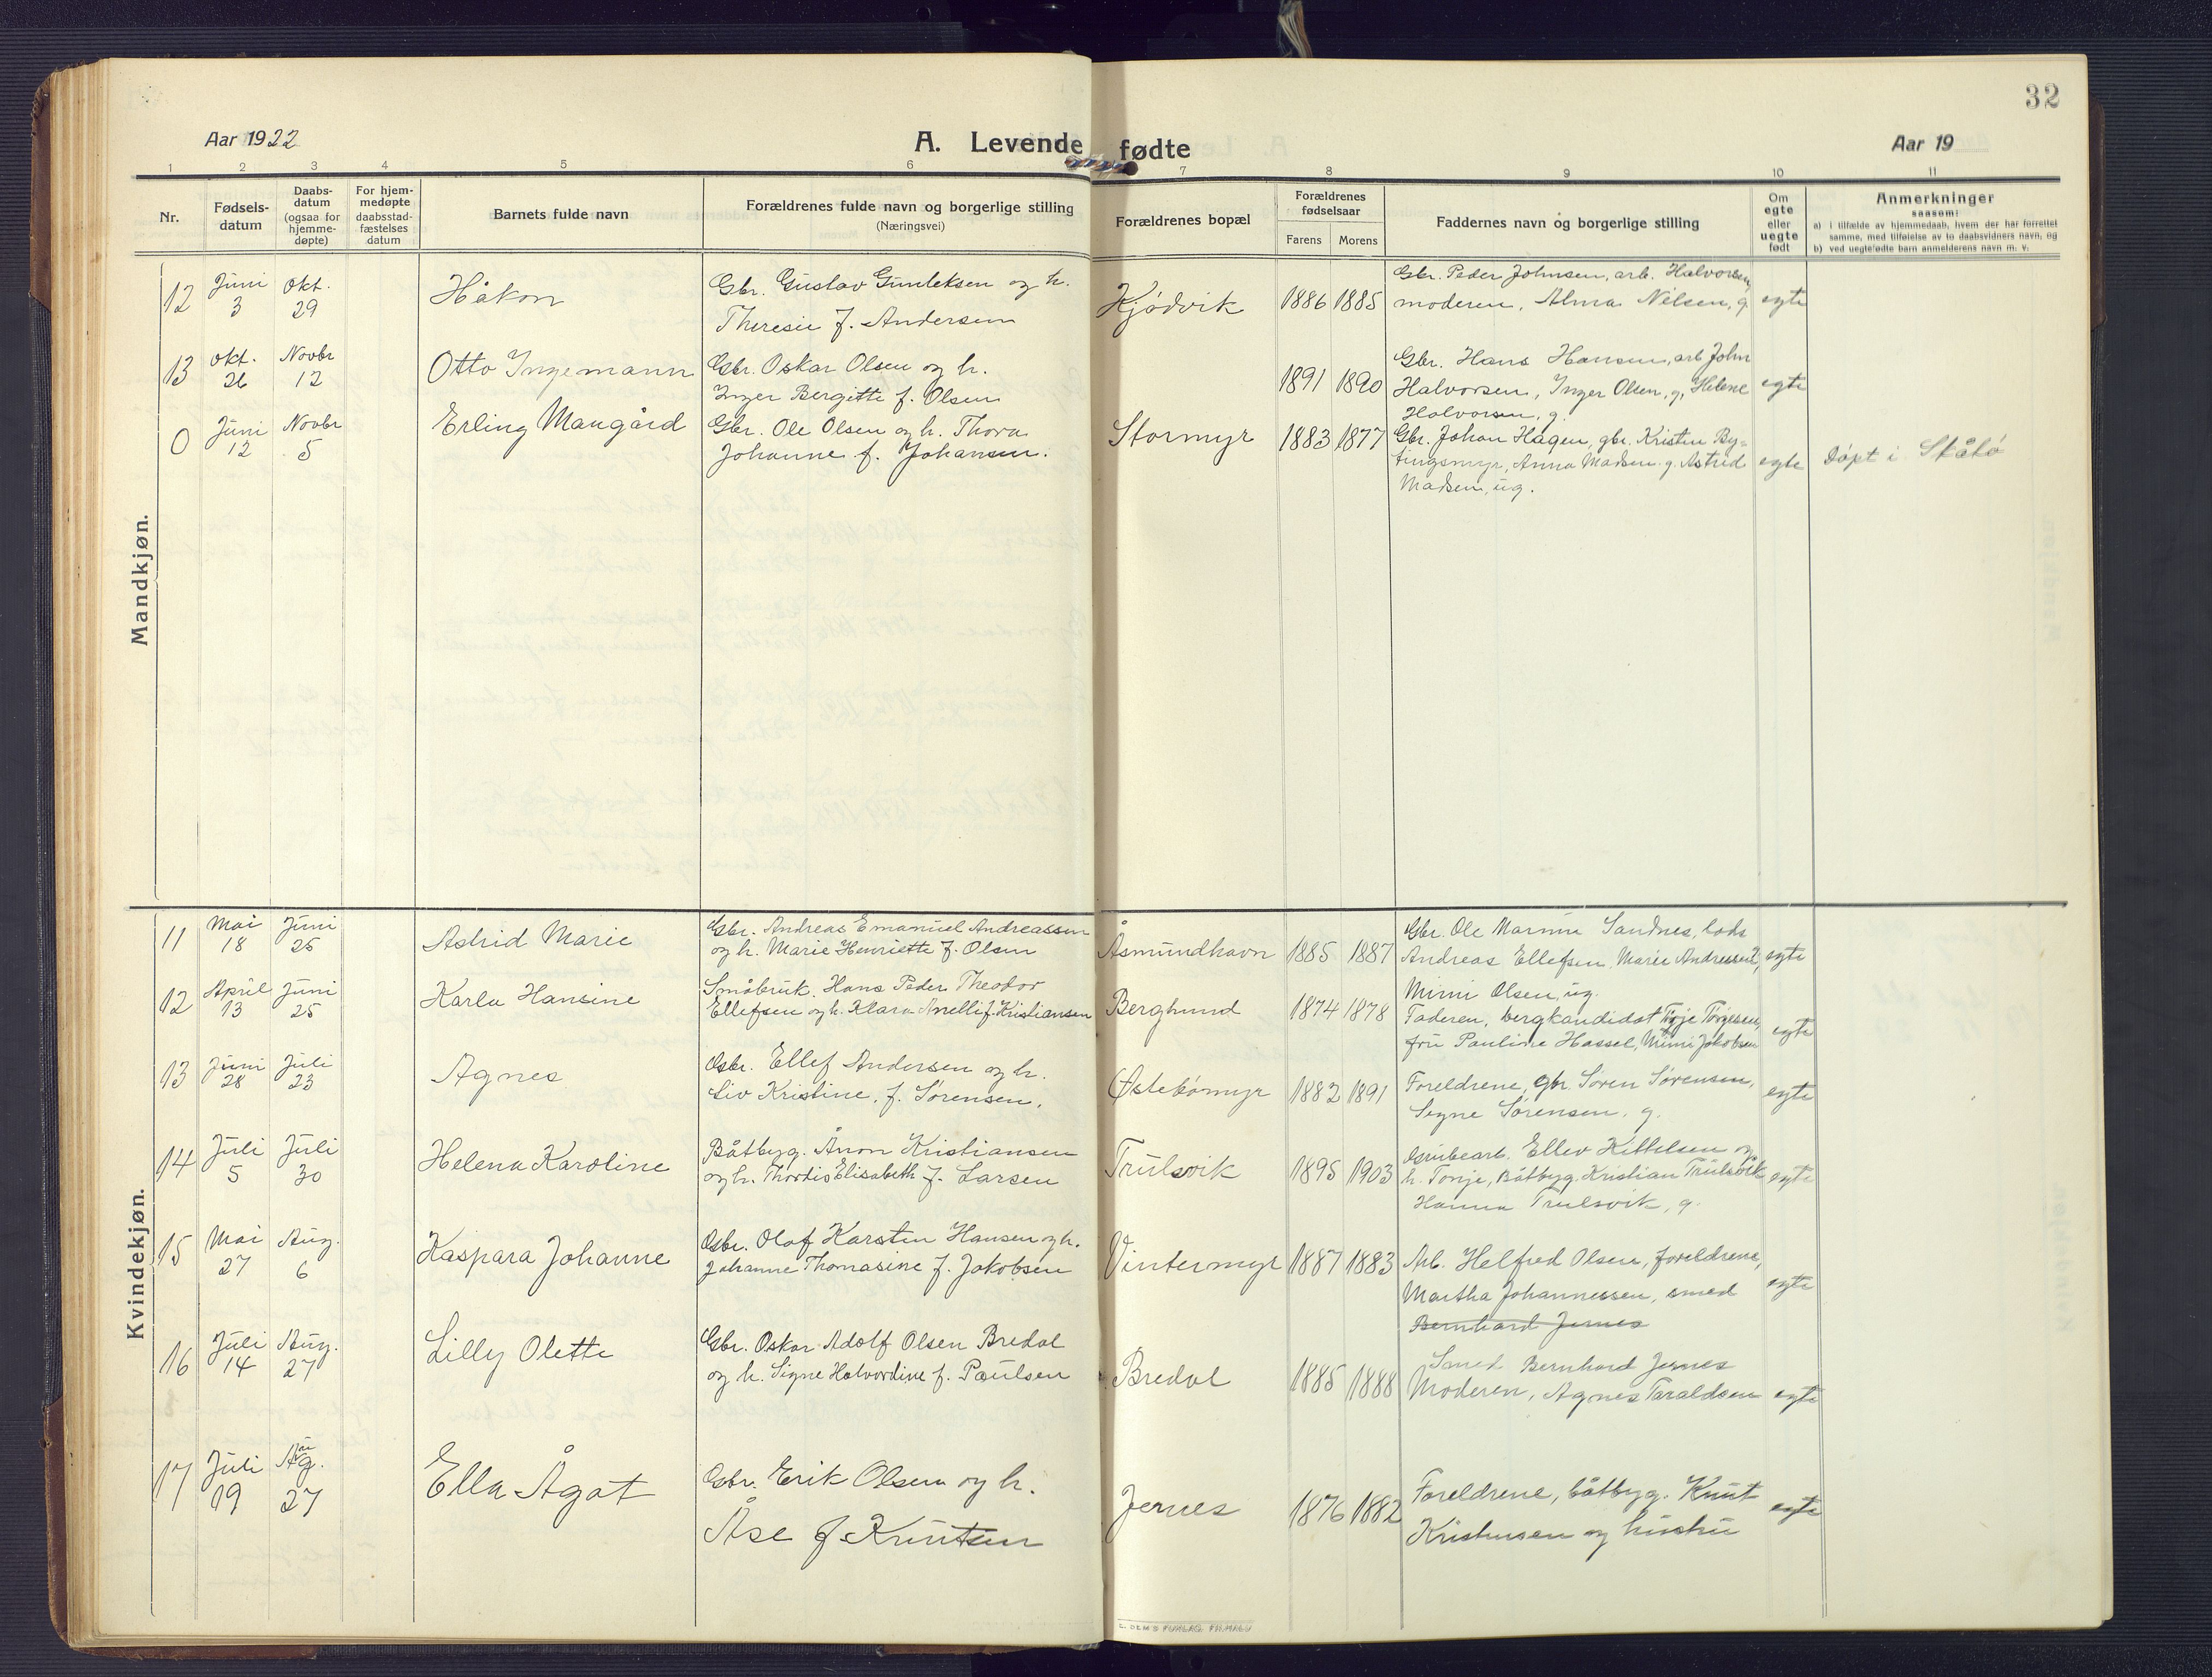 32
Aar 1922
A. Levende fødte
Aar 19
1 2 3 4 5 6 7 8 9 10 11
Nr.
Fødsels-
datum
Daabs-
datum
(ogsaa for
hjemme-
døpte)
For hjem-
medøpte
daabsstad-
fæstelses
datum
Barnets fulde navn
Forældrenes fulde navn og borgerlige stilling
(Næringsvei)
Forældrenes bopæl
Forældrenes
fødselsaar
Farens Morens
Faddernes navn og borgerlige stilling
Om
egte
eller
uegte
født
Anmerkninger
saasom:
a) i tilfælde av hjemmedaab, hvem der har forrettet
samme, med tilføielse av to daabsvidners navn, og
b) ved uegtefødte barn anmelderens navn m. v.
Mandkjøn.
12
Juni
3
Okt.
29
Håkon
Gbr. Gustav Gunleksen og h.
Theresie f. Andersen
Kjødvik
1886 1885
Gbr. Peder Johnsen, arb. Halvorsen,
moderen, Alma Nilsen, g.
egte
13
Okt.
26
Novbr
12
Otto Ingemann
Gbr. Oskar Olsen og h.
Inger Bergitte f. Olsen
1891 1890
Gbr. Hans Hansen, arb John
Halvorsen, Inger Olsen, g, Helene
Halvorsen, g.
egte
0
Juni
12
Novbr
5
Erling Maugård
Gbr. Ole Olsen og h. Thora
Johanne f. Johansen.
Stormyr
1883 1877
Gbr. Johan Hagen, gbr. Kristen By-
tingsmyr, Anna Madsen g. Astrid
Madsen, ug.
egte
Døpt i Skåtø
Kvindekjøn.
11
Mai
18
Juni
25
Astrid Marie
Gbr. Andreas Emanuel Andreassen
og h. Marie Henriette f. Olsen
Åsmundhavn
1885 1887
Gbr. Ole Sandnes, lods
Andreas Ellefsen, Marie
Mimi Olsen, ug.
egte
12
April
13
Juni
25
Karla Hansine
Småbruk. Hans Peder Theodor
Ellefsen og h. Klara f. Kristiansen
Berglund
1874 1878
Faderen, bergkandidat Terje Torjesen,
fru Pauline Hassel, Mimi Jakobsen
egte
13
Juni
28
Juli
23
Agnes
Gbr. Ellef Andersen og h.
Liv Kristine, f. Sørensen.
Østebømyr
1882 1891
Foreldrene, gbr. Søren Sørensen,
Signe Sørensen, g.
egte
14
Juli
5
Juli
30
Helena Karoline
Båtbyg. Ånon Kristiansen
og h. Thordis Elisabeth f. Larsen
Trulsvik
1895 1903
Grubearb. Ellev Kittelsen og
h. Tonje, Båtbyg. Kristian Trulsvik
Hanna Trulsvik, g.
egte
15
Mai
27
Aug.
6
Kaspara Johanne
Gbr. Olaf Karsten Hansen og h.
Johanne Thomasine f. Jakobsen
Vintermyr
1887 1883
Arb. Helfred Olsen, foreldrene,
Martha Johannessen, smed
Bernhard Jernes
egte
16
Juli
14
Aug.
27
Lilly Olette
Gbr. Oskar Adolf Olsen Bredal
og h. Signe Halvordine f. Paulsen
Bredal
1885 1888
Smed Bernhard Jernes
Moderen, Agnes Taraldsen
egte
17
Juli
19
Aug.
27
Ella Ågot
Gbr. Erik Olsen og h.
Åse f Knutsen
Jernes
1876 1882
Foreldrene, båtbyg. Knut
Kristensen og hustru
egte